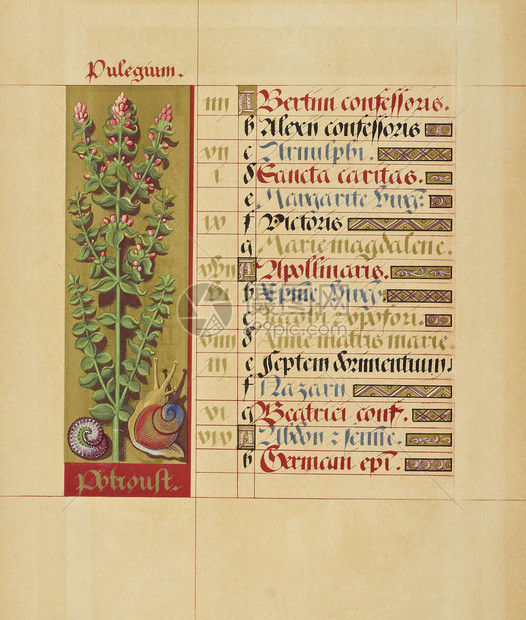 Pulegium.
iiij A Bertini confessoris.
b Alexii confessoris
xij c Arnulphi.
i d Sancta caritas.
e Margarite Virg.
ix f Victoris
g Marie magdalene.
xvij A Apollinaris.
vi b Xpine Virg.
c Jacobi apostoli.
xiiij d Anne matris marie.
iij e Septem dormientium.
f Nazarii
xi g Beatrici conf.
xix A Abdon z senne.
b Germani epi.
Potroust.